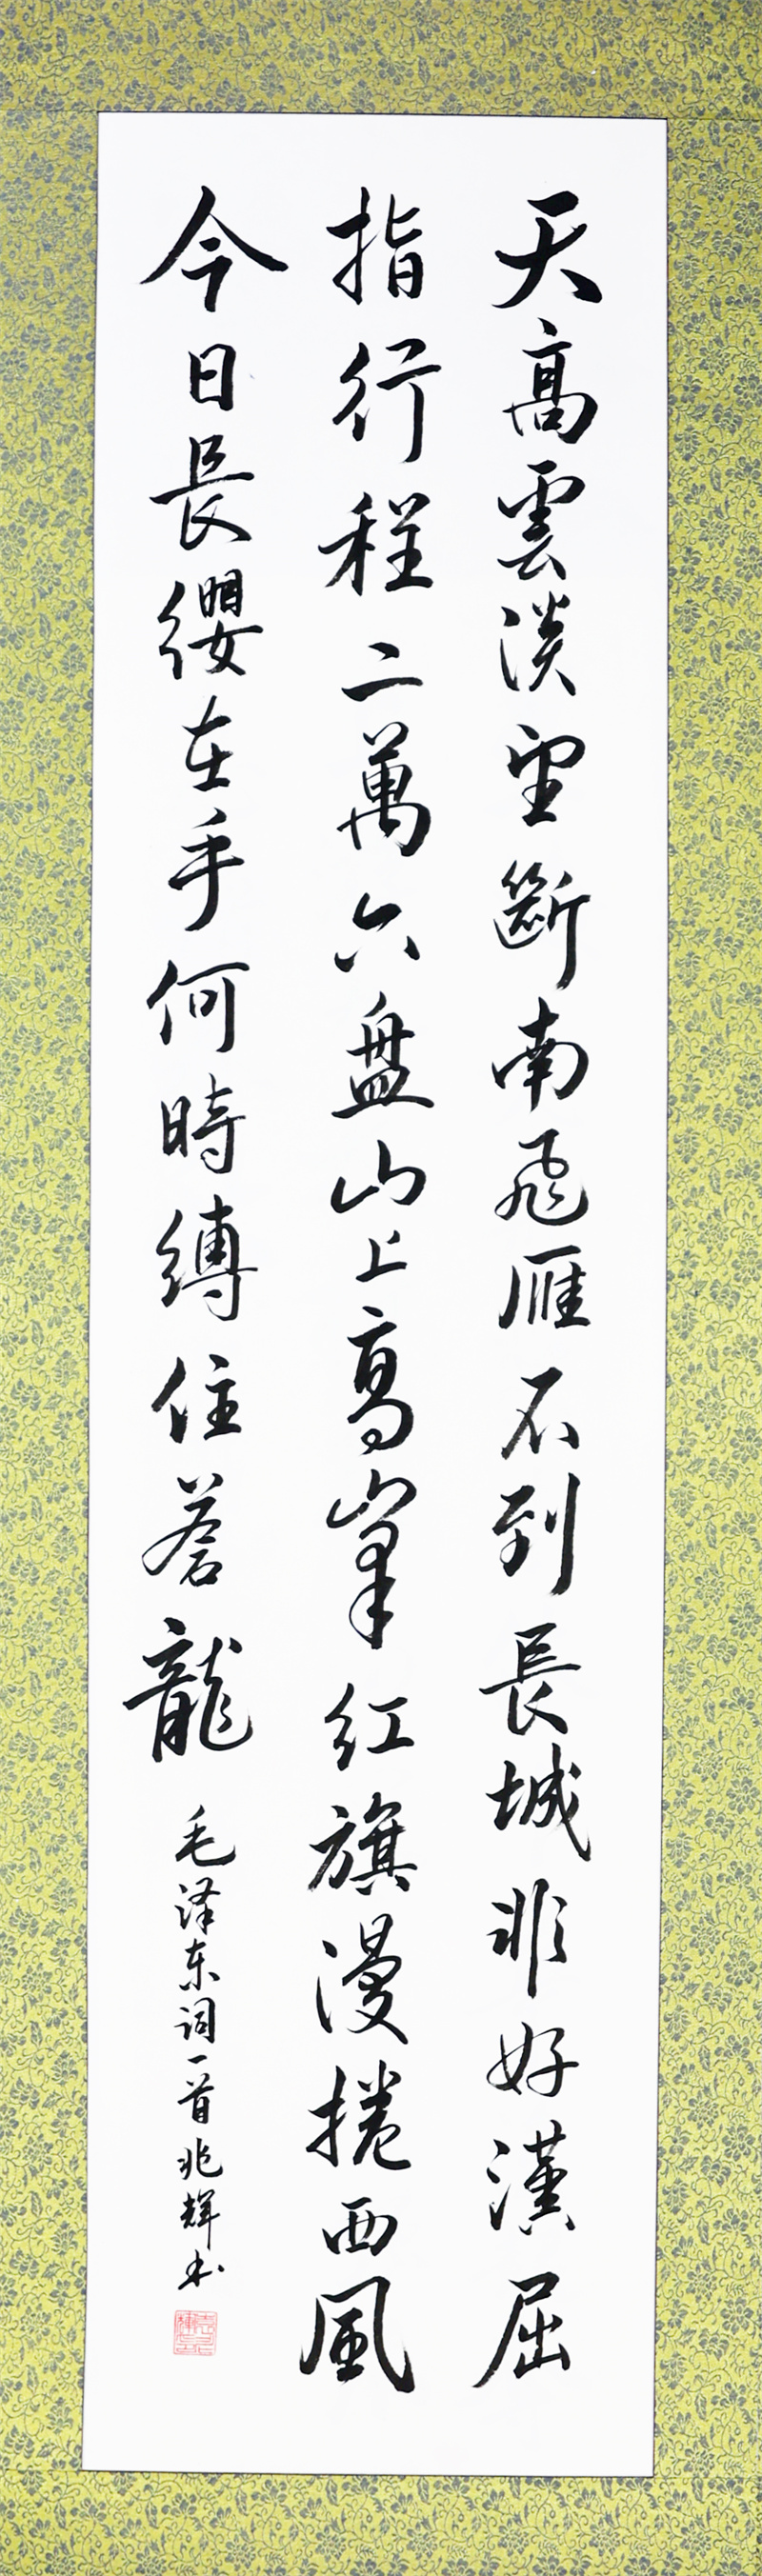 天高雲淡望斷南飛雁不到長城非好漢屈
指行程二萬六盘山上高峯红旗漫捲西風
今日長缨在手何時縛住蒼龍
毛泽东词一首兆輝书